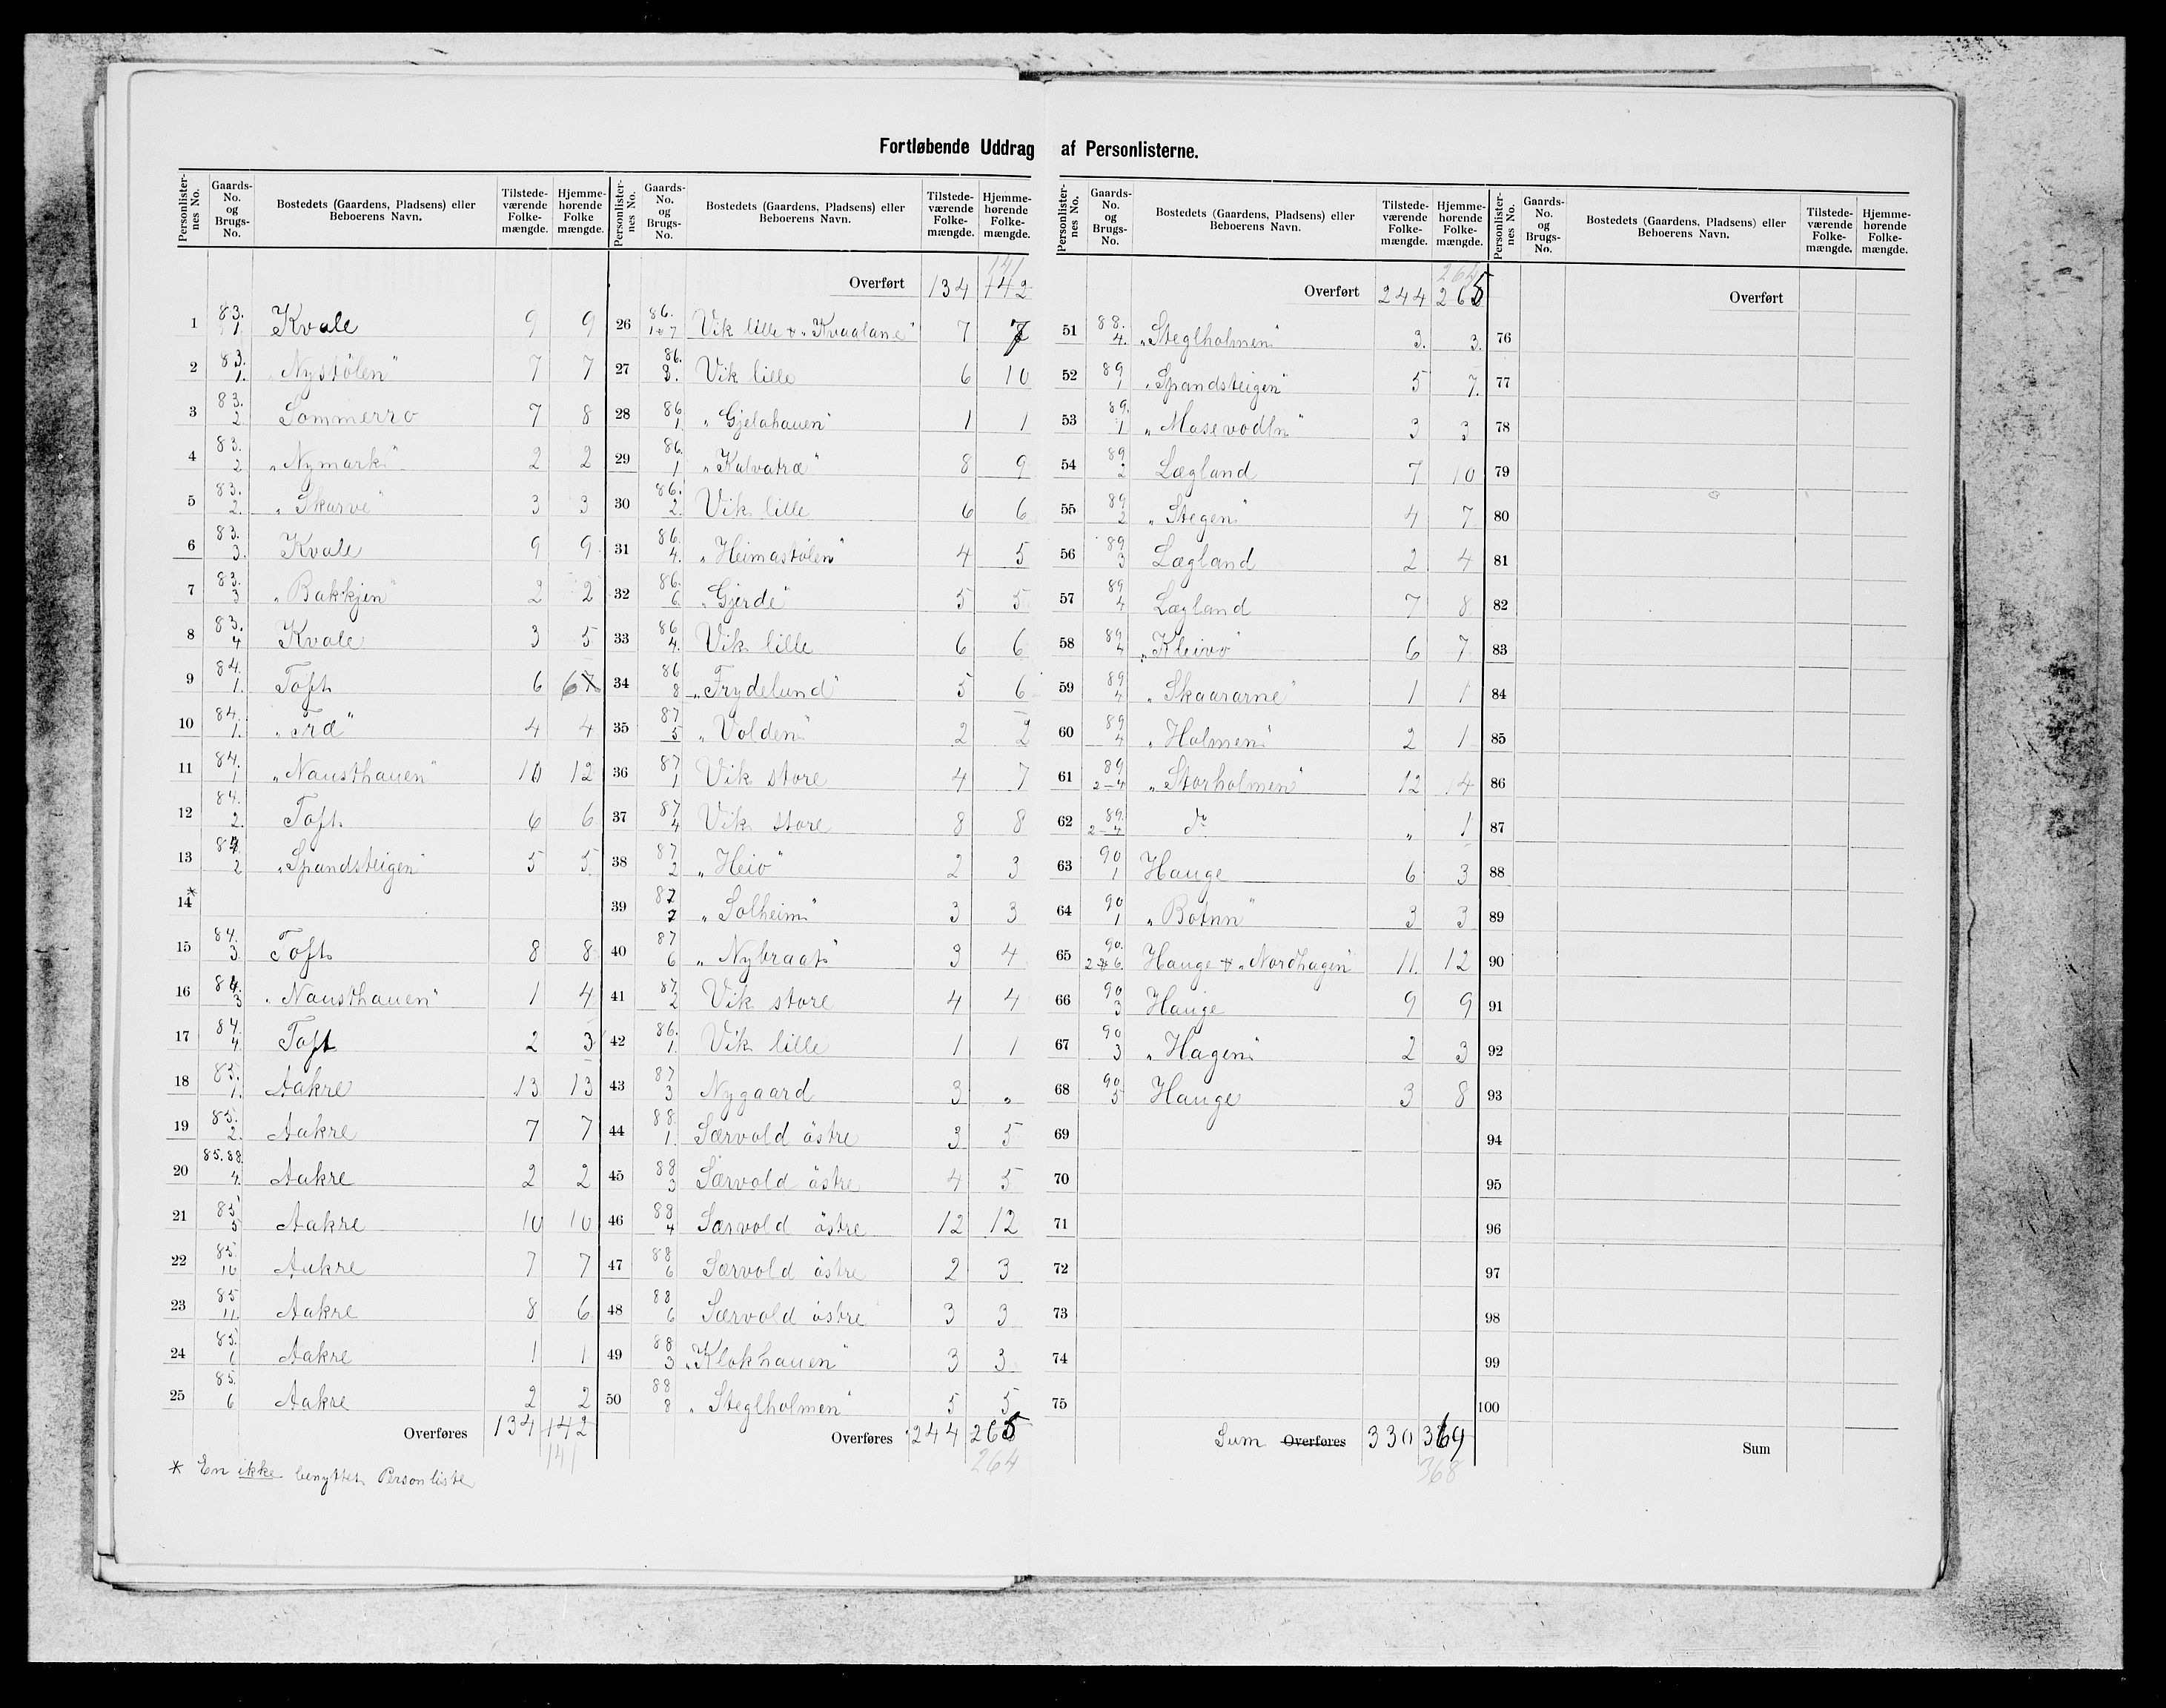 Fortløbende Uddrag af Personlisterne.
Personlister-nes No. Gaards-No. og Brugs-No. Bostedets (Gaardens, Pladsens) eller Beboerens Navn. Tilstede-værende Folke-mængde. Hjemme-hørende Folke mængde.
1 83. 1. Kvale 9 9
2 83. 1. „Nystölen" 7 7
3 83. 2. Sommerro 7 8
4 83. 2 „Nymark" 2 2
5 83. 2. „Skarve" 3 3
6 83. 3. Kvale 9 9
7 83. 3 „Bakkjen" 2 2
8 83. 4 Kvale 3 5
9 84. 1. Toft 6 6
10 84. 1. „Træ" 4 4
11 84. 1 „Nausthauen" 10 12
12 84. 2. Toft 6 6
13 84. 2 „Spandsteigen" 5 5
14*
15 84. 3. Toft 8 8
16 84. 3 „Nausthauen" 1 4
17 84. 4. Toft 2 3
18 85. 1. Aakre 13 13
19 85. 2. Aakre 7 7
20 85.88. 4. Aakre 2 2
21 85 5 Aakre 10 10
22 85. 10 Aakre 7 7
23 85 11. Aakre 8 6
24 85. 6 Aakre 1 1
25 85. 6 Aakre 2 2
Overføres 134 142
141
* En ikke benyttet Personliste
Personlister-nes No. Gaards-No. og Brugs-No. Bostedets (Gaardens, Pladsens) eller Beboerens Navn. Tilstede-værende Folke-mængde. Hjemme-hørende Folke-mængde.
141
Overført 134 142
26 86. 1 & 7 Vik lille & „Kvaalane" 7 7
27 86. 3. Vik lille 6 10
28 86 1. „Gjelahauen" 1 1
29 86. 1 „Kalvatræ" 8 9
30 86. 2. Vik lille 6 6
31 86. 4. „Heimastölen" 4 5
32 86. 6. „Gjerde" 5 5
33 86 4. Vik lille 6 6
34 86 8 „Frydelund" 5 6
35 87 5 „Volden" 2 2
36 87 1 Vik store 4 7
37 87 4 Vik store 8 8
38 87 2 „Heio" 2 3
39 87 7 „Solheim" 3 3
40 87 6 „Nybraat" 3 4
41 87. 2 Vik store 4 4
42 86. 1. Vik lille 1 1
43 87 3 Nygaard 3 „
44 88. 1. Særvold östre 3 5
45 88 3 Særvold östre 4 5
46 88 4 Særvold östre 12 12
47 88 6 Særvold östre 2 3
48 88 6 Særvold östre 3 3
49 88 3 „Klokhauen" 3 3
50 88 8 „Steglholmen" 5 5
Overføres 244 265
264
Personlister-nes No. Gaards-No. og Brugs-No. Bostedets (Gaardens, Pladsens) eller Beboerens Navn. Tilstede-værende Folke-mængde. Hjemme-hørende Folke-mængde.
264
Overført 244 265
51 88. 4. „Steglholmen" 3. 3.
52 89 1 „Spandsteigen" 5 7.
53 89. 1 „Masevodln" 3 3
54 89 2 Lægland 7 10
55 89 2 „Stegen" 4 7
56 89 3 Lægland 2 4
57 89 4 Lægland 7 8
58 89 4 „Kleivo" 6 7
59 89 4 „Skaararne" 1 1
60 89 4 „Holmen" 2 1
61 89 2-4 „Storholmen" 12 14
62 89. 2-4 do „ 1
63 90 1 Hauge 6 3
64 90 1 „Botnn" 3 3
65 90. 2 & 6. Hauge & „Nordhagen" 11. 12
66 90 3 Hauge 9 9
67 90 3 „Hagen" 2 3
68 90 5 Hauge 3 8
69
70
71
72
73
74
75
Sum Overføres 330 369
368
Personlister-nes No. Gaards-No. og Brugs-No. Bostedets (Gaardens, Pladsens) eller Beboerens Navn. Tilstede-værende Folke-mængde. Hjemme-hørende Folke-mængde.
Overført
76
77
78
79
80
81
82
83
84
85
86
87
88
89
90
91
92
93
94
95
96
97
98
99
100
Sum